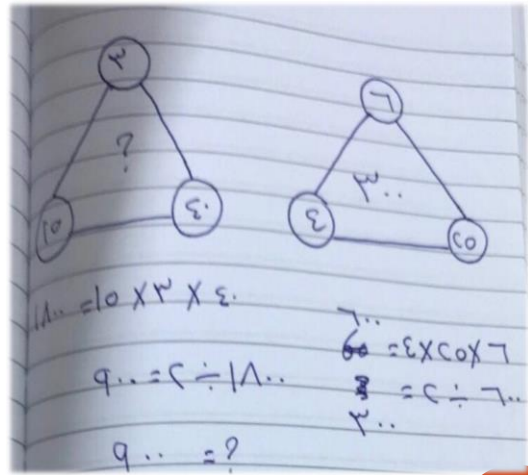 ٦
٣٠٠
٤
٢٥
٣
?
٤٠
١٥
٦×٢٥×٤=
٦٠٠
٦٠٠ ÷ ٢ =
٣٠٠
٤٠ × ٣ × ١٥ = ١٨٠٠
١٨٠٠ ÷ ٢ = ٩٠٠
? = ٩٠٠